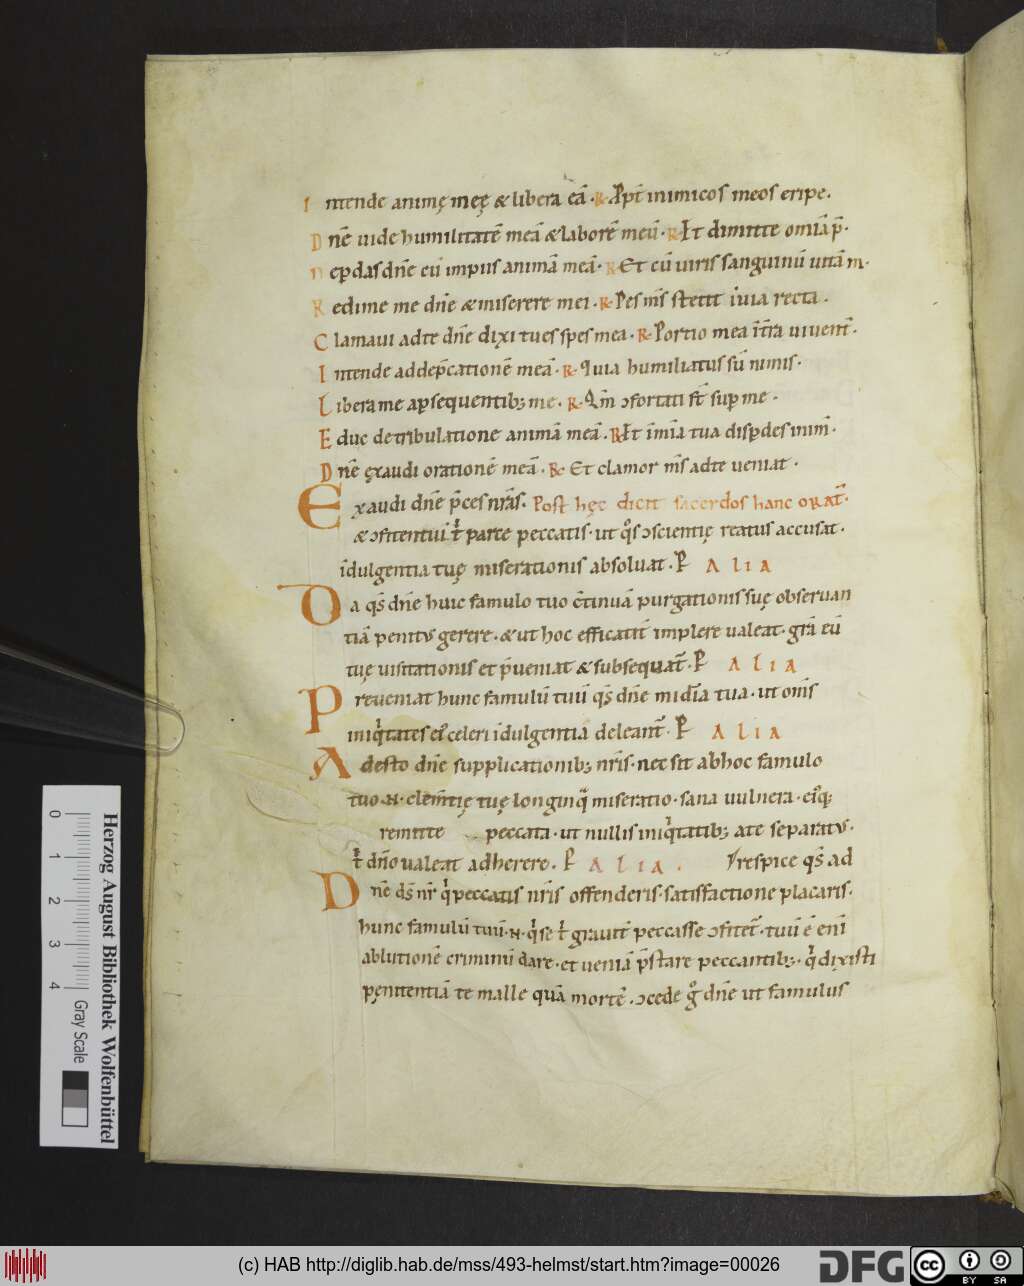 Intende animę meę & libera eā · R · Ꝓpt̄ inimicos meos eripe ·
Dn̄e uide humilitatē meā & laborē meū · R · Et dimitte om̄ia p̄ ·
Ne ꝑdas dn̄e cū impiis animā meā · R · Et cū uiris sanguinū uitā m ·
Redime me dn̄e & miserere mei · R · Pes m̄s stetit ī uia recta ·
Clamaui ad te dn̄e dixi tu es spes mea · R · Portio mea ī t̄ra uiuent̄ ·
Intende ad dep̄cationē meā · R · Quia humiliatus sū nimis ·
Libera me a ꝑsequentib; me · R · Qm̄ ꝯfortati st̄ suꝑ me ·
Educ de tribulatione animā meā · R · Et ī mīa tua disꝑdes inim̄ ·
Dn̄e ęxaudi orationē meā · R · Et clamor m̄s ad te ueniat ·
Exaudi dn̄e p̄ces nr̄as · Post hęc dicit sacerdos hanc orat̄ ·
& ꝯfitentiū t̄ parce peccatis · ut qͦs ꝯscientię reatus accusat ·
īdulgentia tuę miserationis absoluat · P Alia
Da qs̄ dn̄e huic famulo tuo c̄tinuā purgationis suę obseruan
tiā penitus gerere · & ut hoc efficacit̄ implere ualeat · gr̄a eū
tuę uisitationis et p̄ueniat & subsequat̄ · P Alia
Preueniat hunc famulū tuū qs̄ dn̄e mīdia tua · ut om̄s
iniqͥtates ei celeri īdulgentia deleant̄ · P Alia
Adesto dn̄e supplicationib; nr̄is · nec sit ab hoc famulo
tuo · N · clem̄tię tuę longinqͣ miseratio · sana uulnera · eiꝰq;
remitte peccata · ut nullis iniqͥtatib; a te separatus ·
t̄ dn̄o ualeat adherere · P Alia · respice qs̄ ad
Dn̄e ds̄ nr̄ qͥ peccatis nr̄is offenderis · satisfactione placaris ·
hunc famulū tuū · N · qͥ se t̄ grauit̄ peccasse ꝯfitet̄ · tuū ē enī
ablutionē criminū dare · et ueniā p̄stare peccantib; · qͥ dixisti
pęnitentiā te malle quā mortē · ꝯcede gͦ dn̄e ut famulus
0 1 2 3 4
Gray Scale
Herzog August Bibliothek Wolfenbüttel
(c) HAB http://diglib.hab.de/mss/493-helmst/start.htm?image=00026
DFG
cc
BY SA